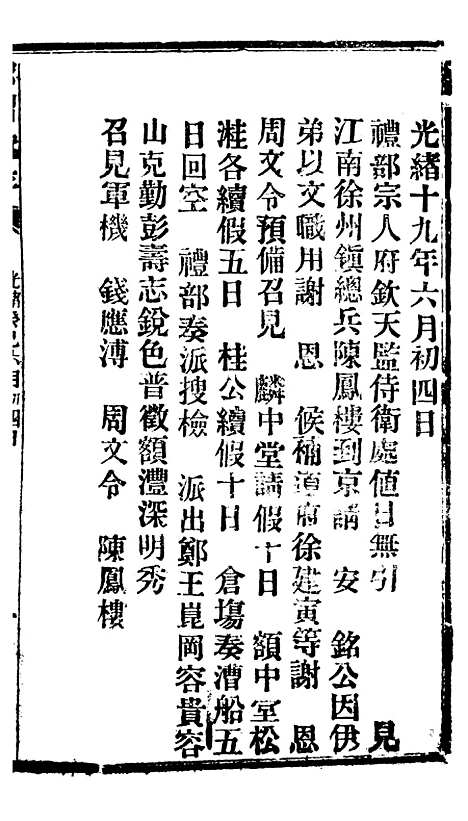 光緒十九年六月初四日
禮部宗人府欽天監侍衛處値日無引　見
江南徐州鎭總兵陳鳳樓到京請　安　銘公因伊
弟以文職用謝　恩　候補道府徐建寅等謝　恩
周文令預備召見　麟中堂請假十日　額中堂松
溎各續假五日　桂公續假十日　倉塲奏漕船五
日回空　禮部奏派搜檢　派出鄭王崑岡容貴容
山克勤彭壽志銳色普徵額灃深明秀
召見軍機　錢應溥　周文令　陳鳳樓